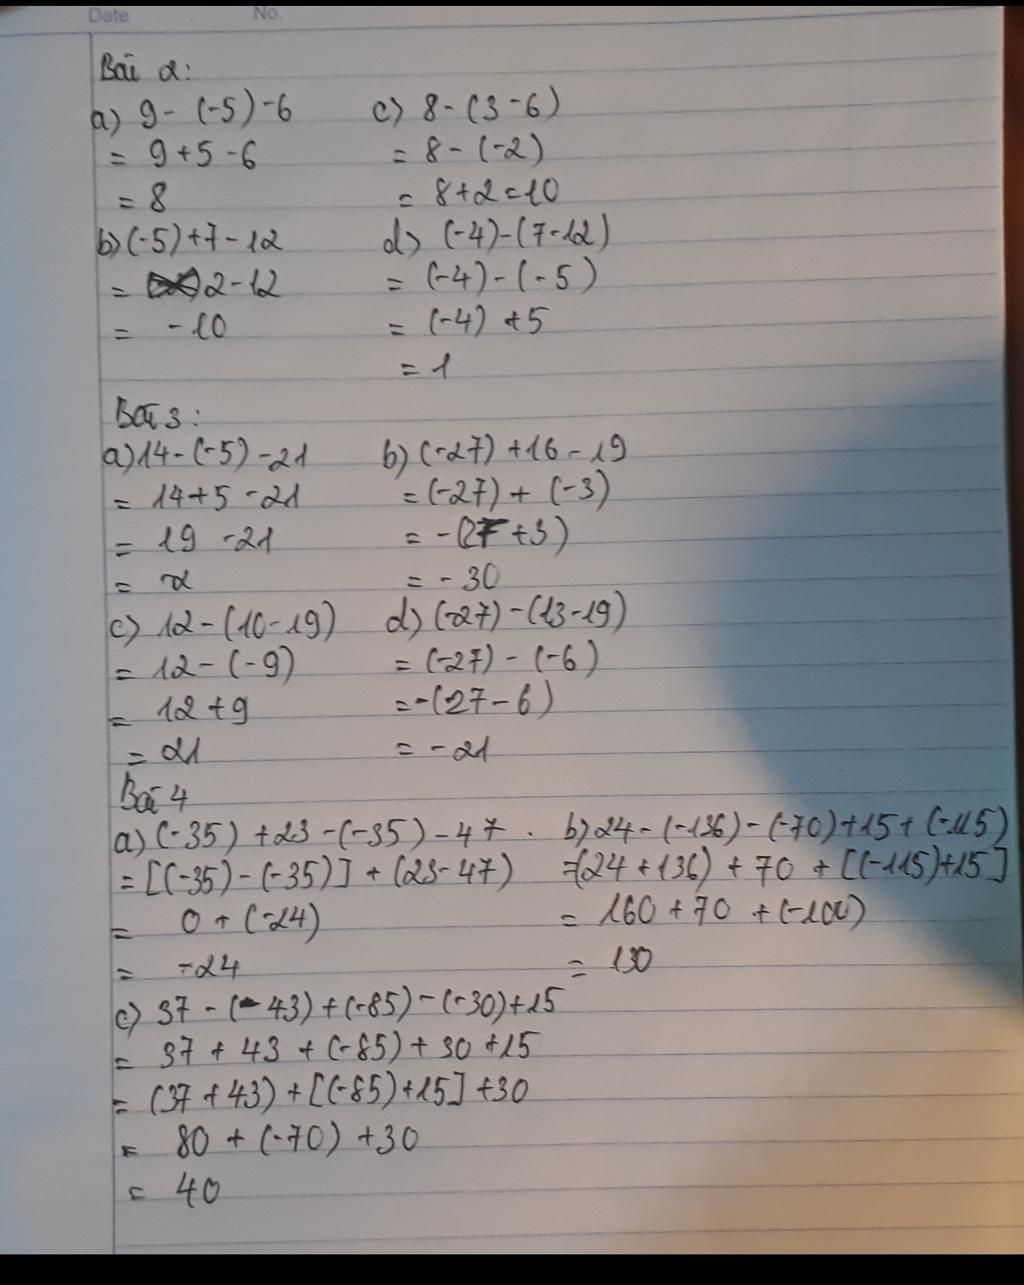 Date No.
Bài 2:
a) 9 - (-5) - 6
= 9 + 5 - 6
= 8
b) (-5) + 7 - 12
= 2 - 12
= -10
c) 8 - (3 - 6)
= 8 - (-2)
= 8 + 2 = 10
d) (-4) - (7 - 12)
= (-4) - (-5)
= (-4) + 5
= 1
Bài 3:
a) 14 - (-5) - 21
= 14 + 5 - 21
= 19 - 21
= -2
b) (-27) + 16 - 19
= (-27) + (-3)
= -(27 + 3)
= -30
c) 12 - (10 - 19)
= 12 - (-9)
= 12 + 9
= 21
d) (-27) - (13 - 19)
= (-27) - (-6)
= -(27 - 6)
= -21
Bài 4
a) (-35) + 23 - (-35) - 47
= [(-35) - (-35)] + (23 - 47)
= 0 + (-24)
= -24
b) 24 - (-136) - (-70) + 15 + (-115)
= (24 + 136) + 70 + [(-115) + 15]
= 160 + 70 + (-100)
= 130
c) 37 - (-43) + (-85) - (-30) + 15
= 37 + 43 + (-85) + 30 + 15
= (37 + 43) + [(-85) + 15] + 30
= 80 + (-70) + 30
= 40